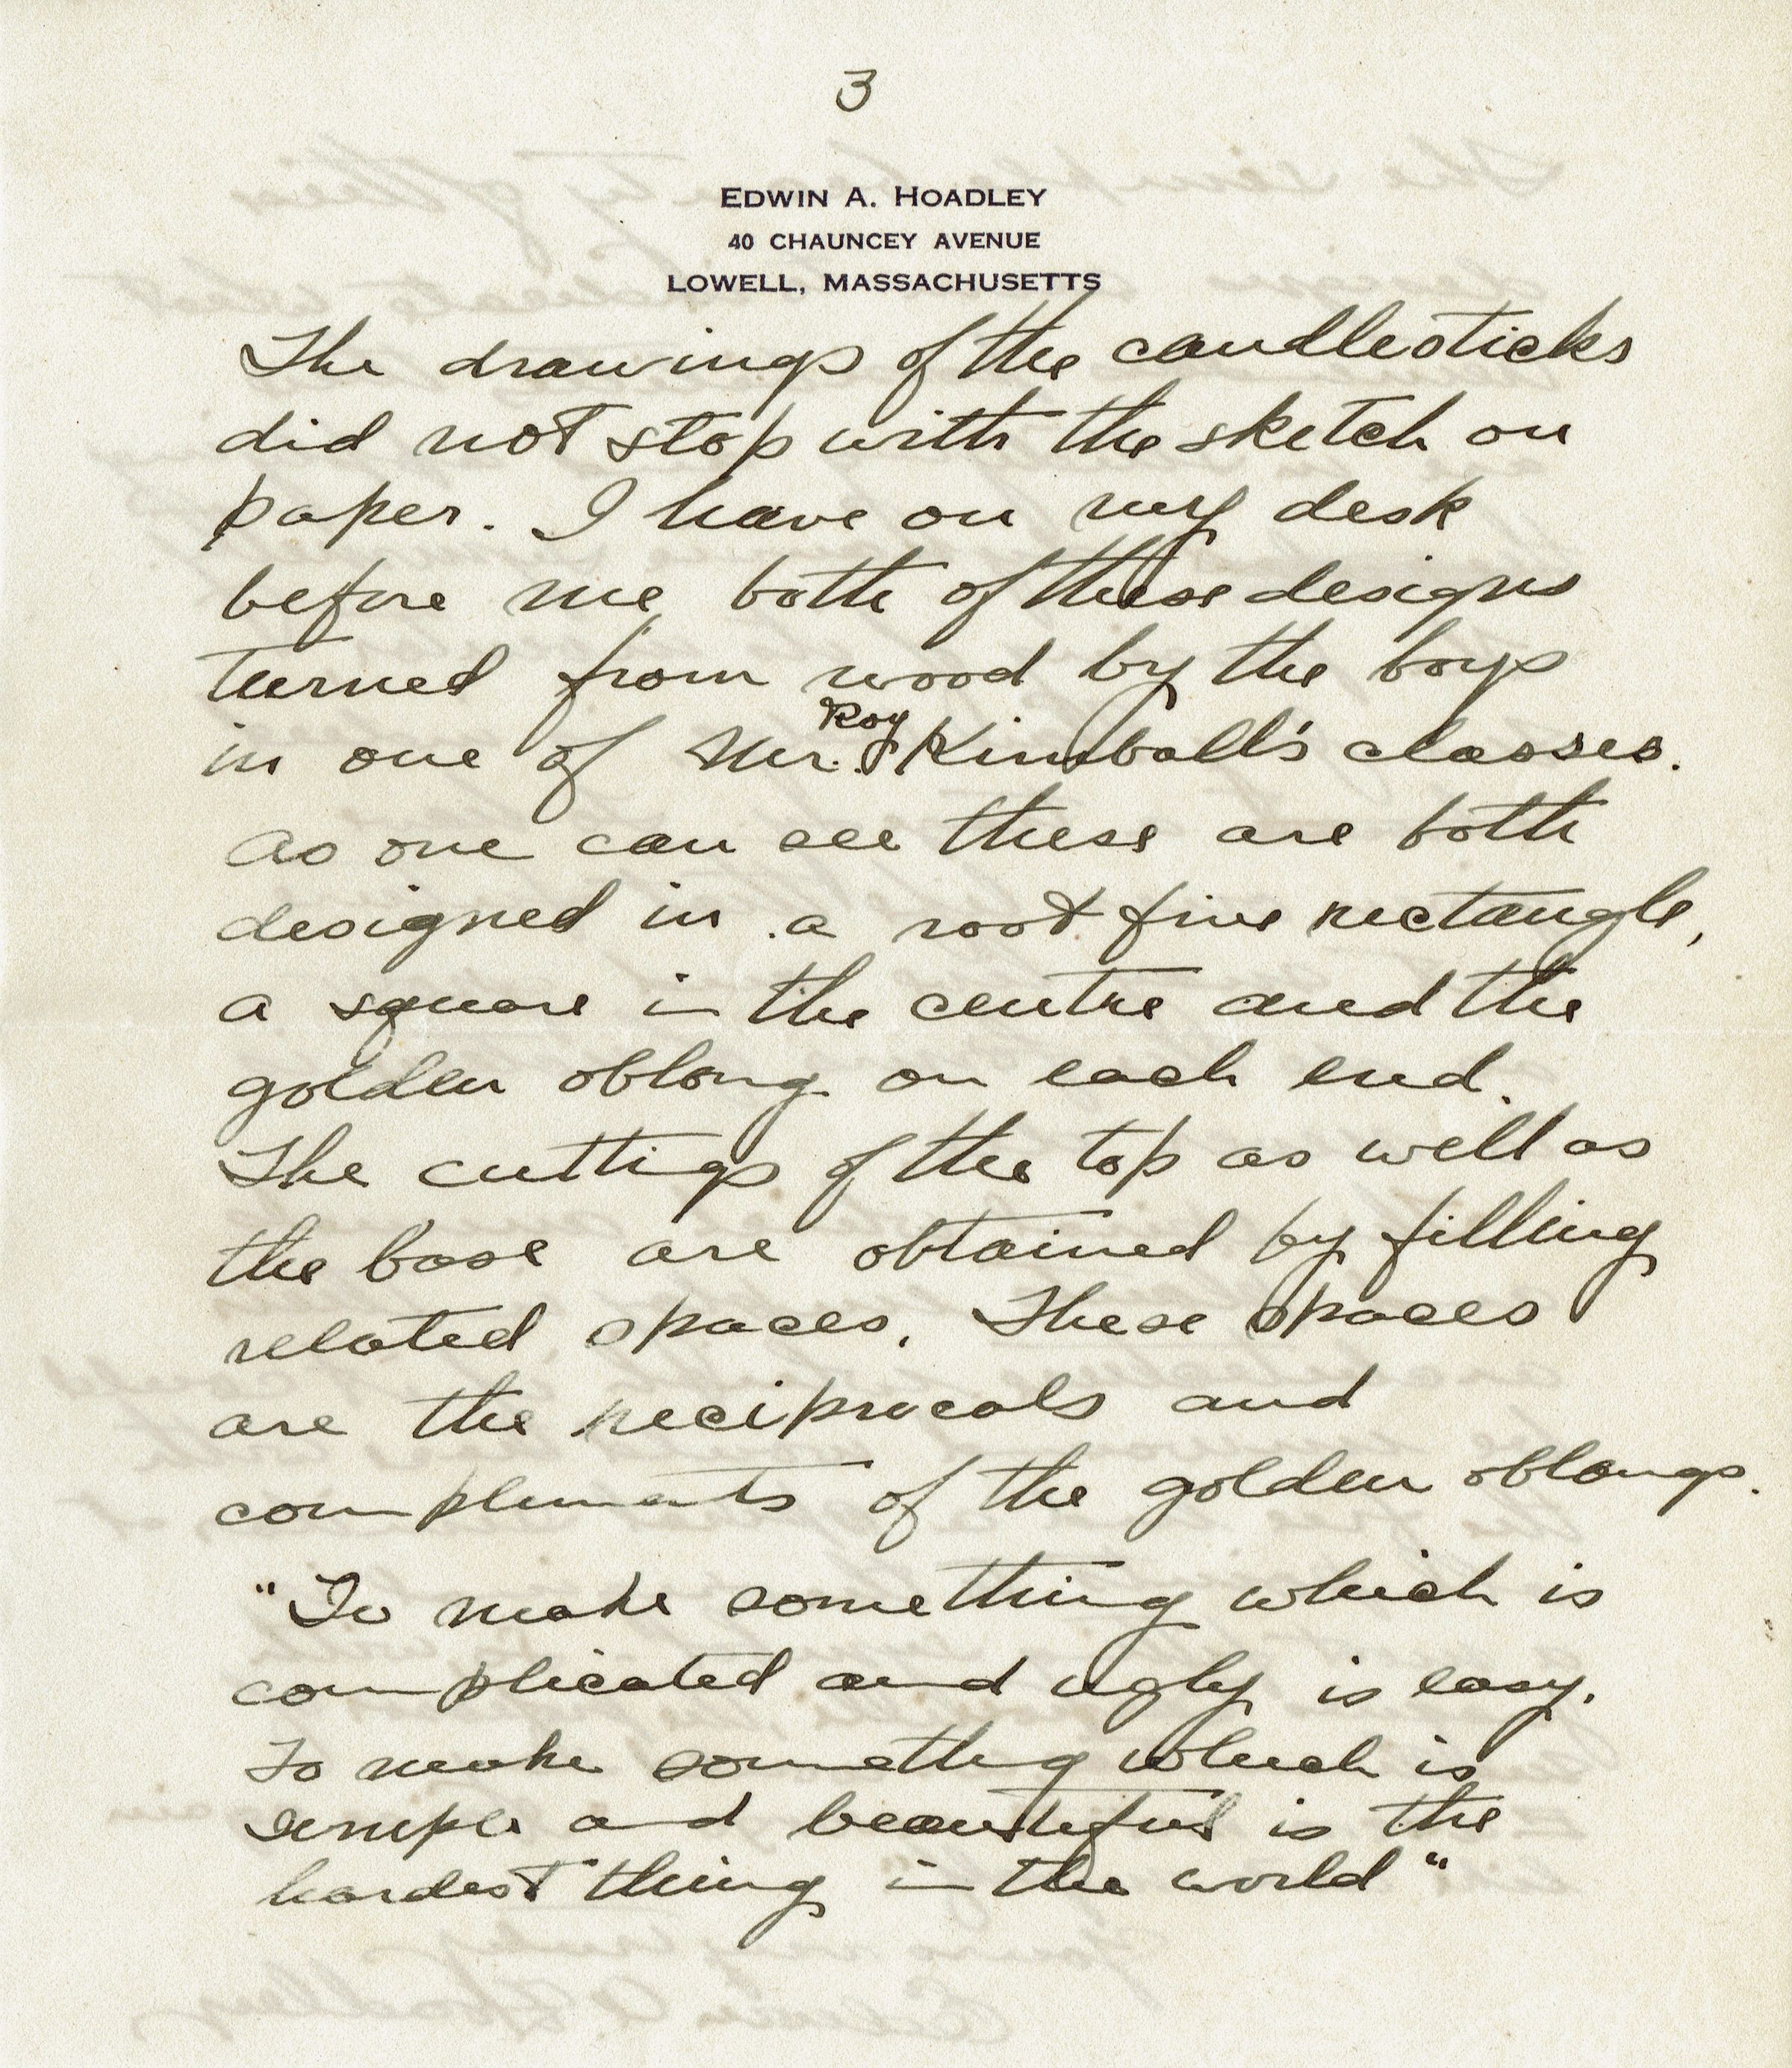 3
EDWIN A. HOADLEY
40 CHAUNCEY AVENUE
LOWELL, MASSACHUSETTS
The drawings of the candlesticks
did not stop with the sketch on
paper. I have on my desk
before me, both of these designs
turned from wood by the boys
Roy
in one of Mr. Kimball's classes.
As one can see these are both
designed in a root five rectangle,
a square in the centre and the
golden oblong on each end.
The cuttings of the top as well as
the base are obtained by filling
related spaces. These spaces
are the reciprocals and
complements of the golden oblongs.
"To make something which is
complicated and ugly is easy.
To make something which is
simple and beautiful is the
hardest thing in the world"